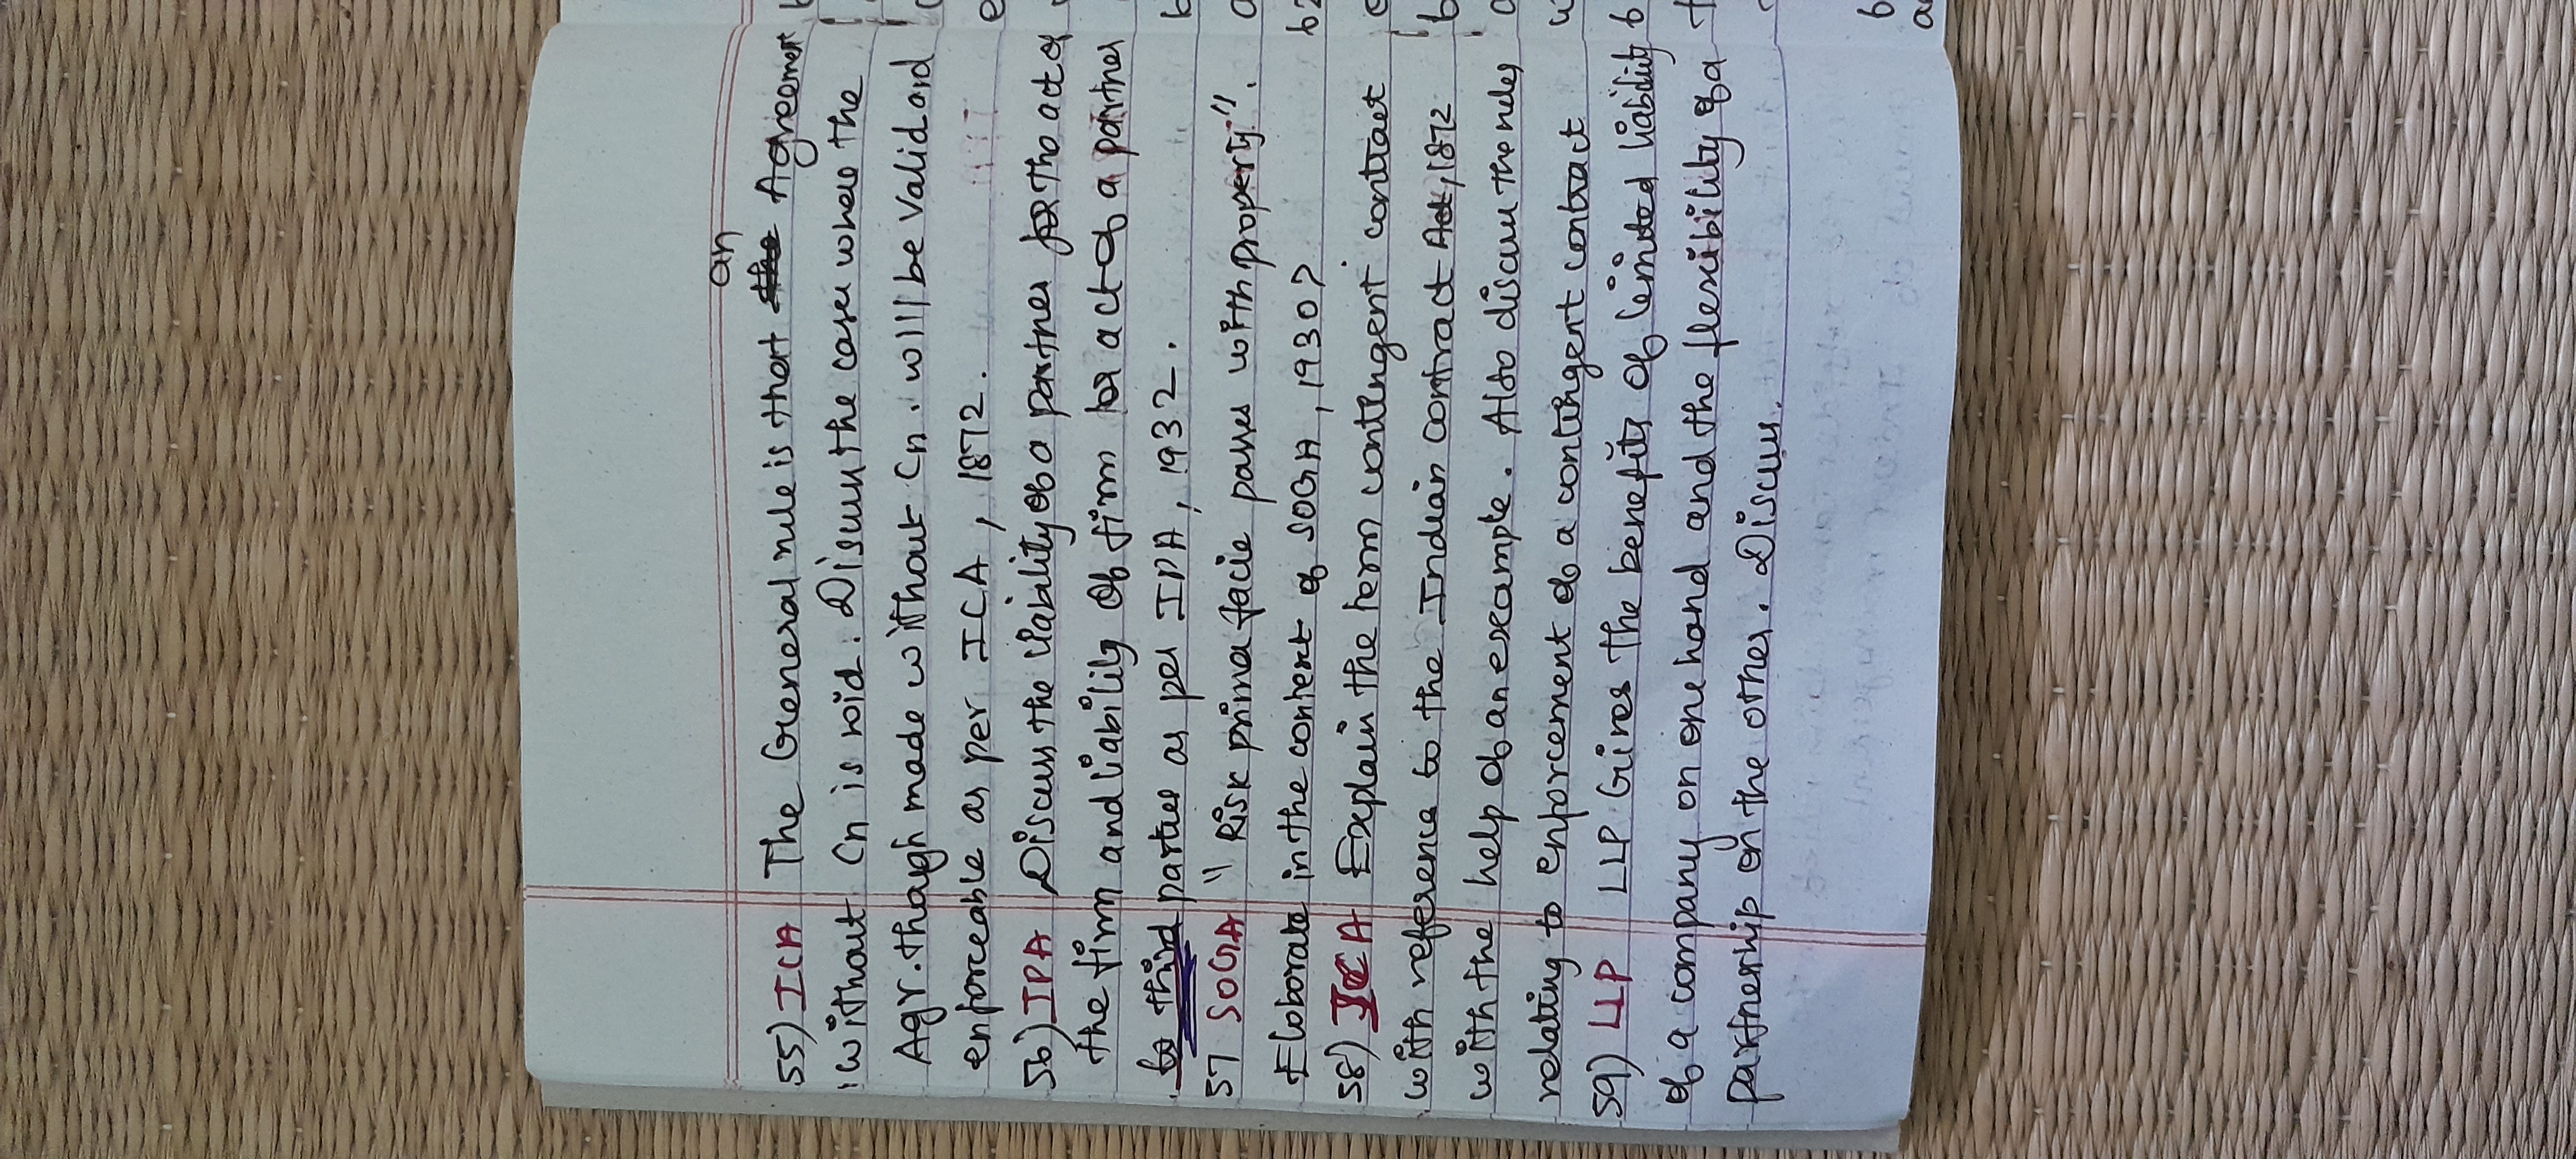 an
55) ICA The General rule is that the Agreement
without Cn is void. Discuss the cases where the
Agr. though made without Cn. will be valid and
enforceable as per ICA, 1872.
56) IPA Discuss the liability of a partner for the act of
the firm and liability of firm for act of a partner
to third parties as per IPA, 1932.
57 SOGA "Risk prima facie passes with property".
Elaborate in the context of SOGA, 1930?
58) ICA Explain the term contingent contract
with reference to the Indian contract Act, 1872
with the help of an example. Also discuss the rules
relating to enforcement of a contingent contract
59) LLP LLP Gives the benefits of limited liability
of a company on one hand and the flexibility of a
partnership on the other. Discuss.